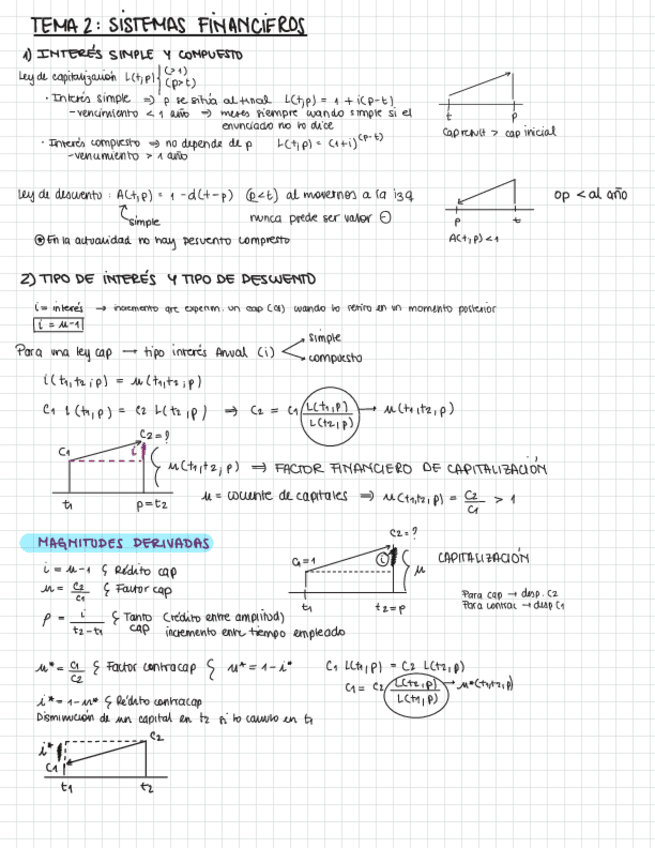 TEMA 2: SISTEMAS FINANCIEROS
1) INTERÉS SIMPLE Y COMPUESTO
Ley de capitalización L(t,p) { (>1)
(p>t)
· Interés simple => p se sitúa al final L(t,p) = 1 + i(p-t)
- vencimiento < 1 año => meses siempre cuando simple si el
enunciado no lo dice
t p
cap result > cap inicial
· Interés compuesto => no depende de p L(t,p) = (1+i)^(p-t)
- vencimiento > 1 año
Ley de descuento : A(t,p) = 1 - d(t-p) (p<t) al movernos a la izq
simple
nunca puede ser valor ⊖
op < al año
p t
A(t,p) < 1
En la actualidad no hay descuento compuesto
2) TIPO DE INTERÉS Y TIPO DE DESCUENTO
i = interés → incremento que experim. un cap (C1) cuando lo retiro en un momento posterior
i = u-1
Para una ley cap → tipo interés Anual (i)
simple
compuesto
i(t1,t2;p) = u(t1,t2;p)
C1 L(t1,p) = C2 L(t2,p) => C2 = C1 L(t1,p) / L(t2,p) → u(t1,t2,p)
C1 C2=? i
t1 p=t2
u(t1,t2;p) => FACTOR FINANCIERO DE CAPITALIZACIÓN
u = cociente de capitales => u(t1,t2,p) = C2/C1 > 1
MAGNITUDES DERIVADAS
i = u-1 { Rédito cap
u = C2/C1 { Factor cap
P = i/(t2-t1) { Tanto cap (rédito entre amplitud)
incremento entre tiempo empleado
C1=1 C2=? i u
t1 t2=p
CAPITALIZACIÓN
Para cap → desp. C2
Para contrac → desp C1
u* = C1/C2 { Factor contracap { u* = 1-i*
i* = 1-u* { Rédito contracap
Disminución de un capital en t2 si lo cambio en t1
C1 L(t1,p) = C2 L(t2,p)
C1 = C2 L(t2,p) / L(t1,p) → u*(t1,t2,p)
i* C1 C2
t1 t2